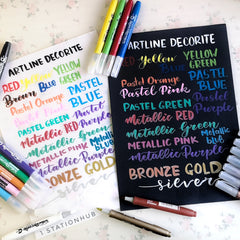 ARTLINE DECORITE
RED Yellow YELLOW GREEN
Brown Blue PASTEL BLUE
Pastel Orange
Pastel Pink
PASTEL GREEN Pastel Purple
Metallic RED
Metallic Green
METALLIC PINK Metallic BLUE
Metallic Purple
BRONZE GOLD
silver
STATIONHUB
ARTLINE DECORITE
RED Yellow YELLOW GREEN
Brown Blue PASTEL BLUE
Pastel Orange
Pastel Pink
PASTEL GREEN Pastel Purple
Metallic RED
Metallic Green
METALLIC PINK Metallic BLUE
Metallic Purple
BRONZE GOLD
silver